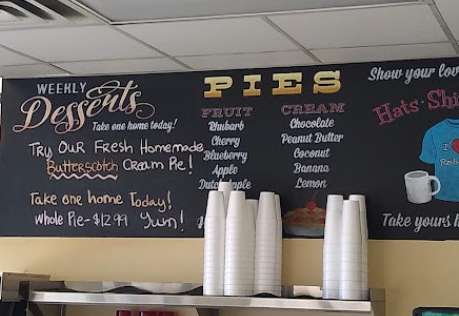 WEEKLY
Desserts
Take one home today!
Try Our Fresh Homemade
Butterscotch Cream Pie!
Take one home Today!
Whole Pie-$12.99 Yum!
PIES
FRUIT
Rhubarb
Cherry
Blueberry
Apple
Dutch
CREAM
Chocolate
Peanut Butter
Coconut
Banana
Lemon
Show your
Hats
I
Take yours